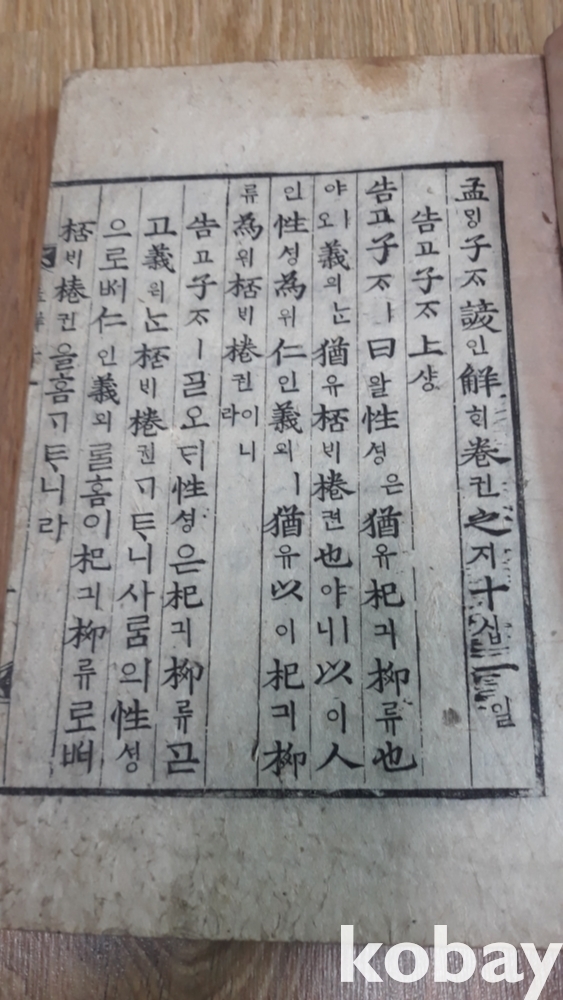 孟ᄆᆡᆼ子ᄌᆞ諺언解ᄒᆡ卷권之지十십一일
告고子ᄌᆞ上샹
告고子ᄌᆞㅣ曰왈性셩은猶유杞긔柳류也
야오ㅣ義의ᄂᆞᆫ猶유桮ᄇᆡ棬권也야ㅣ니以이人
인性셩為위仁인義의ㅣ猶유以이杞긔柳
류為위桮ᄇᆡ棬권이니라
告고子ᄌᆞㅣᄀᆞᆯ오ᄃᆡ性셩은杞긔柳류ᄀᆞᆮ
고義의ᄂᆞᆫ桮ᄇᆡ棬권ᄀᆞᄐᆞ니사ᄅᆞᆷ의性셩
으로ᄡᅥ仁인義의ᄅᆞᆯ홈이杞긔柳류로ᄡᅥ
桮ᄇᆡ棬권을홈ᄀᆞᄐᆞ니라
kobay